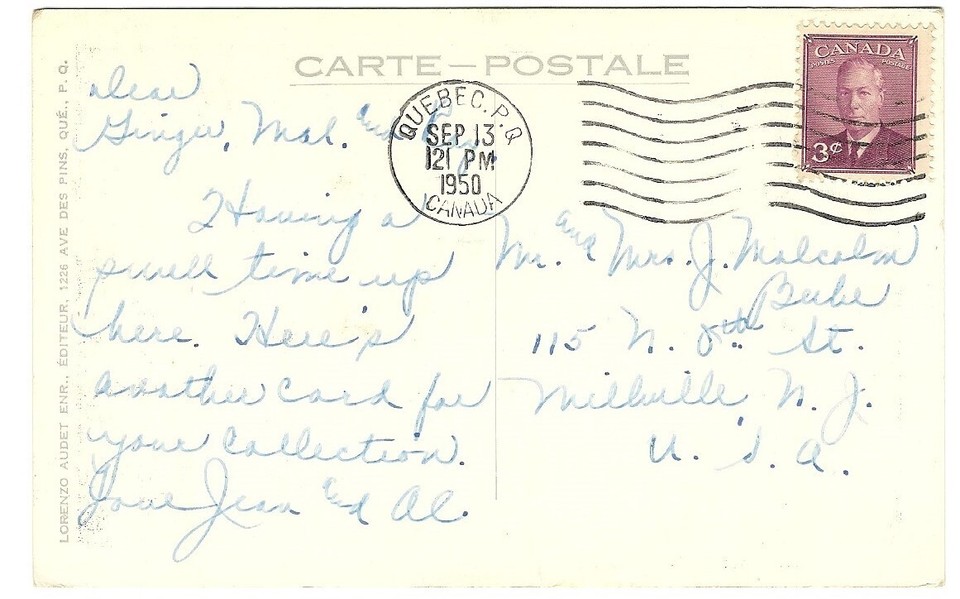 CARTE — POSTALE
LORENZO AUDET ENR., ÉDITEUR, 1226 AVE DES PINS, QUÉ., P. Q.
Dear
Ginger, Mal. and
Having a
swell time up
here. Here's
another card for
your collection.
Love Jean and Al.
QUEBEC. P.Q
SEP 13
121 PM
1950
CANADA
CANADA
POSTES POSTAGE
3¢
Mr. and Mrs. J. Malcolm
Beebe
115 N. 8th St.
Millville, N. J.
U. S. A.